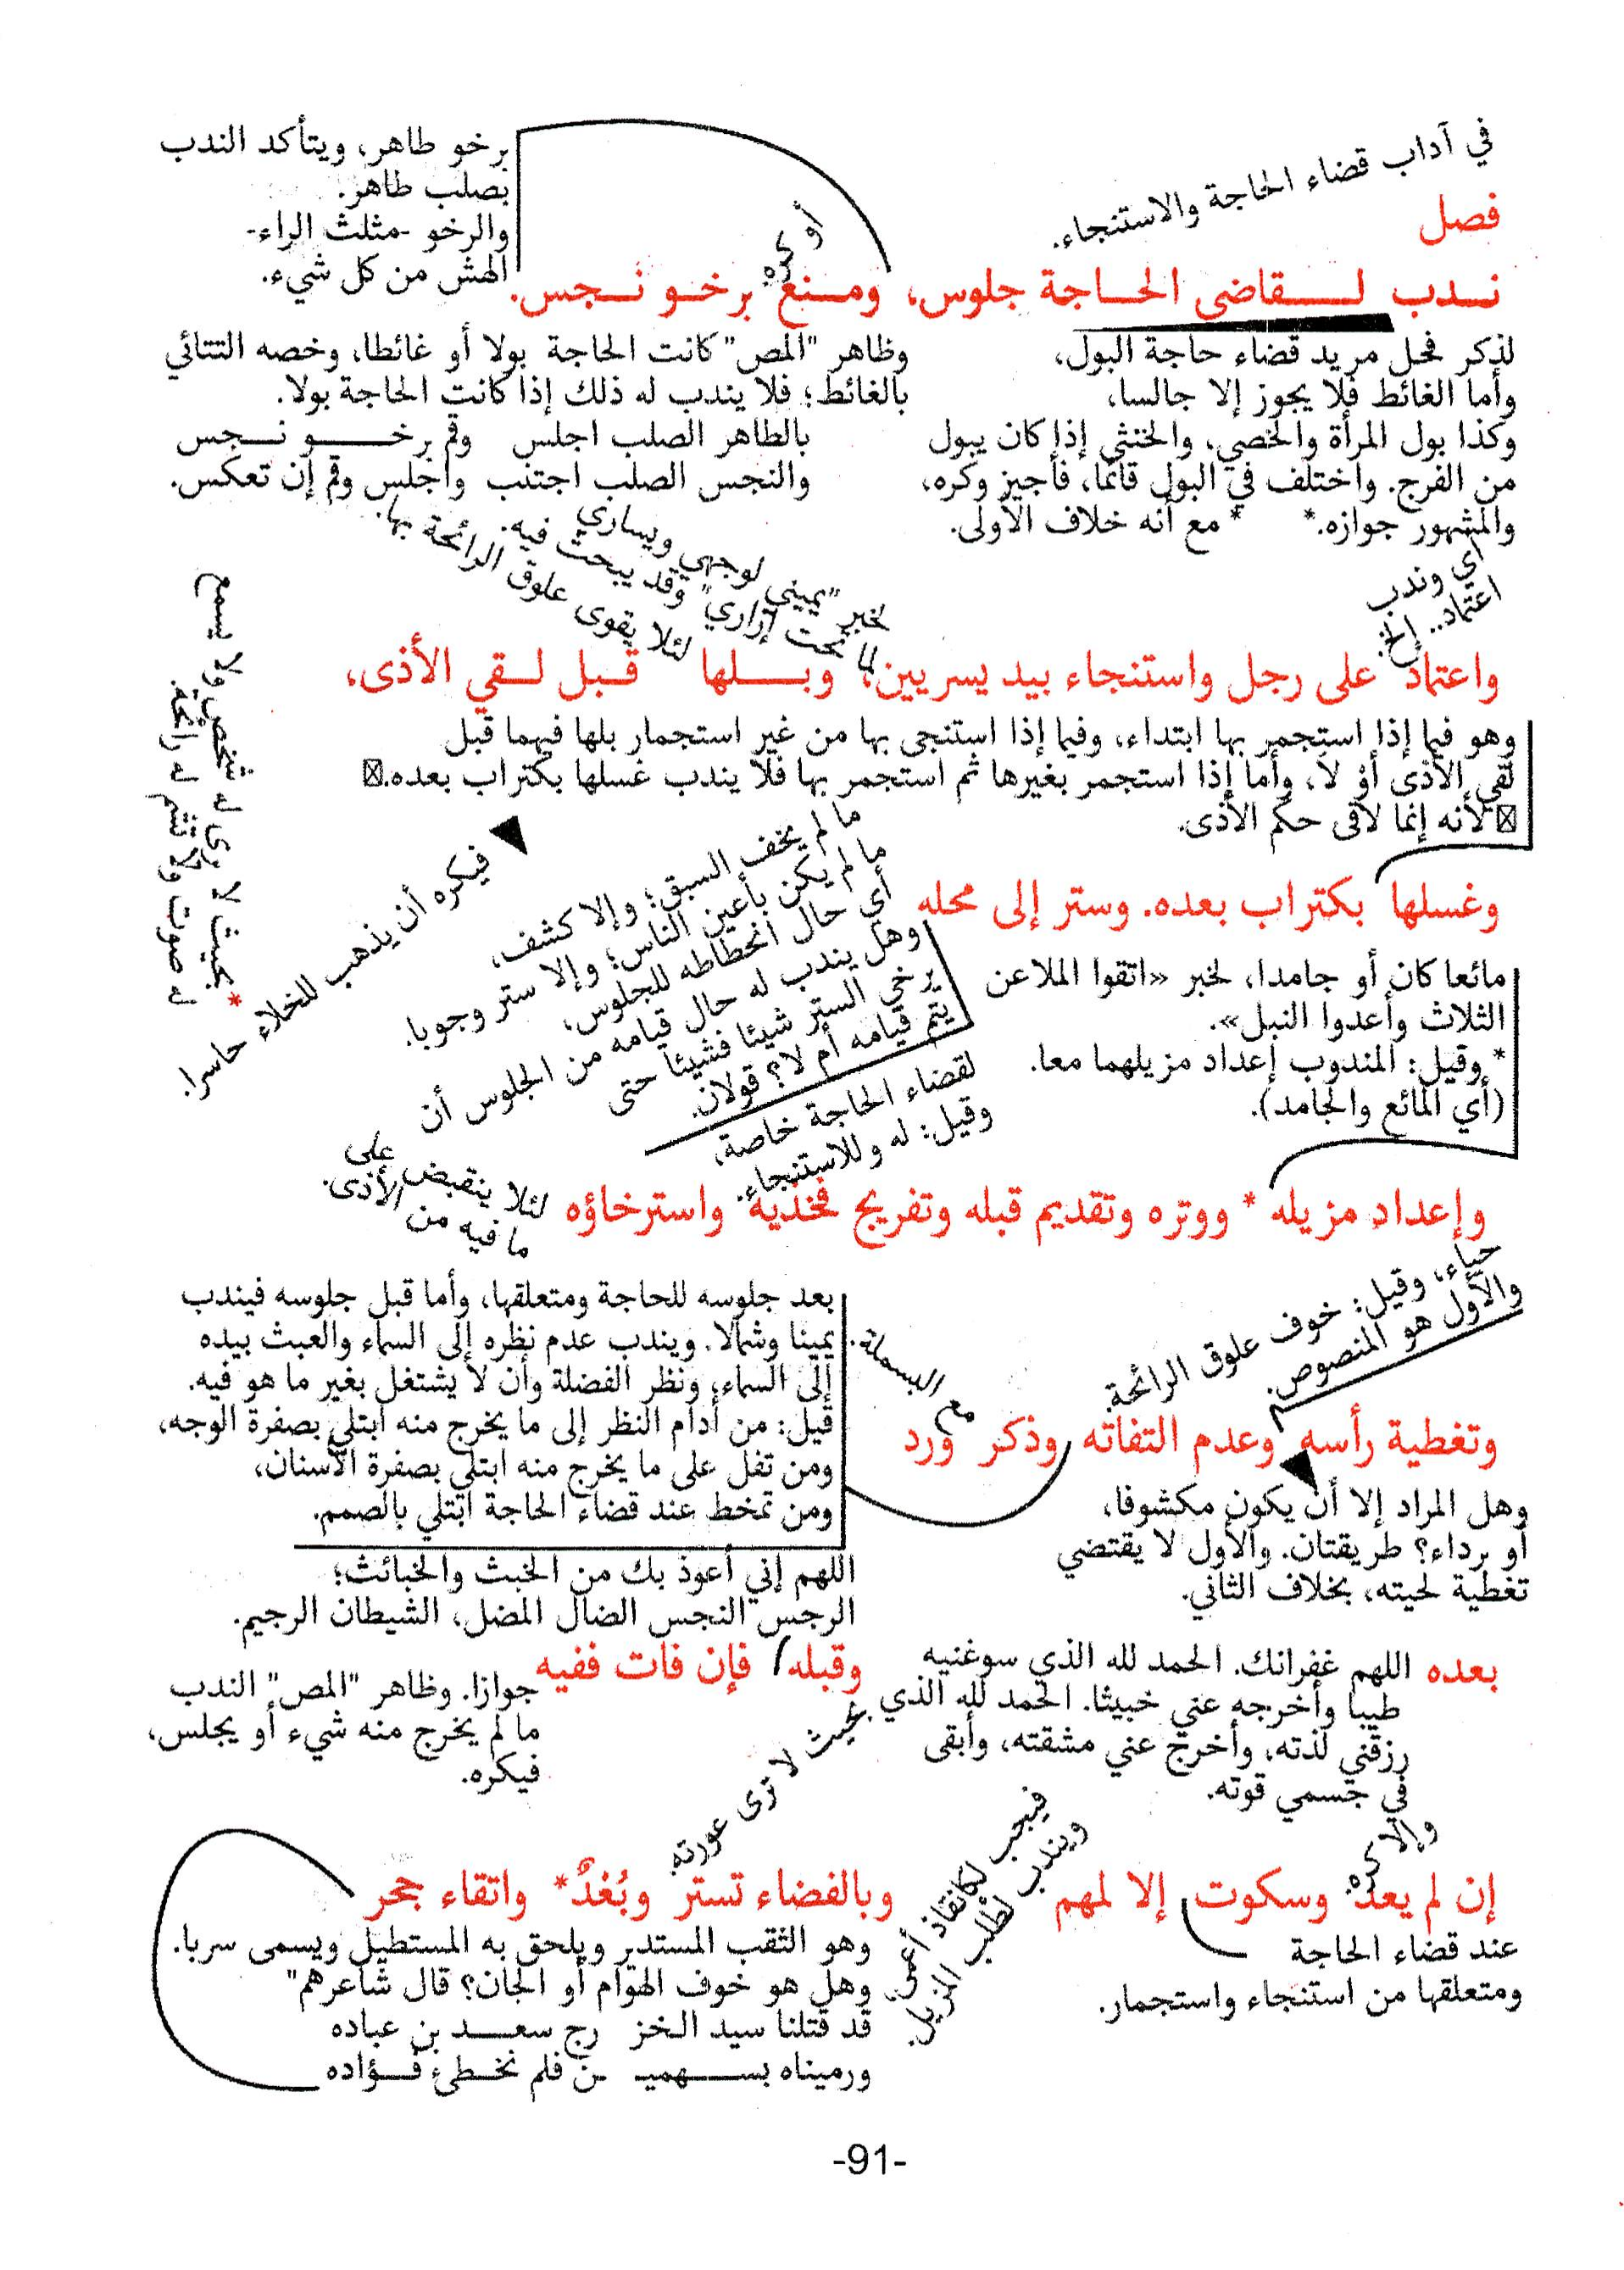 في آداب قضاء الحاجة والاستنجاء.
فصل
ندب لقاضي الحاجة جلوس، ومنع برخو نجس.
أو كره
برخو طاهر، ويتأكد الندب
بصلب طاهر.
والرخو -مثلث الراء-
الهش من كل شيء.
لذكر فحل مريد قضاء حاجة البول،
وأما الغائط فلا يجوز إلا جالسا،
وكذا بول المرأة والخصي، والخنثى إذا كان يبول
من الفرج. واختلف في البول قائما، فأجيز وكره،
والمشهور جوازه.* * مع أنه خلاف الأولى.
وظاهر "المص" كانت الحاجة بولا أو غائطا، وخصه التتائي
بالغائط؛ فلا يندب له ذلك إذا كانت الحاجة بولا.
بالطاهر الصلب اجلس وقم برخو نجس
والنجس الصلب اجتنب واجلس وقم إن تعكس.
أي وندب
اعتماد.. إلخ.
لخبر "يميني لوجهي ويساري
لما تحت إزاري" وقد يبحث فيه.
لئلا يقوى علوق الرائحة بها.
واعتماد على رجل واستنجاء بيد يسريين، وبلها قبل لقي الأذى،
وهو فيما إذا استجمر بها ابتداء، وفيما إذا استنجى بها من غير استجمار بلها فيهما قبل
لقي الأذى أوْ لا، وأما إذا استجمر بغيرها ثم استجمر بها فلا يندب غسلها بكتراب بعده.
لأنه إنما لاقى حكم الأذى.
وغسلها بكتراب بعده. وستر إلى محله
ما لم يخف السبق؛ وإلا كشف،
ما لم يكن بأعين الناس؛ وإلا ستر وجوبا.
أي حال انحطاطه للجلوس،
وهل يندب له حال قيامه من الجلوس أن
يرخي الستر شيئا فشيئا حتى
يتم قيامه أم لا؟ قولان.
فيكره أن يذهب للخلاء حاسرا.
* بحيث لا يرى له شخص ولا يسمع
له صوت ولا تشم له رائحة.
مائعا كان أو جامدا، لخبر «اتقوا الملاعن
الثلاث وأعدوا النبل».
* وقيل: المندوب إعداد مزيلهما معا.
(أي المائع والجامد).
لقضاء الحاجة خاصة،
وقيل: له وللاستنجاء.
لئلا ينقبض على
ما فيه من الأذى.
وإعداد مزيله * ووتره وتقديم قبله وتفريج فخذيه واسترخاؤه
حياء، وقيل: خوف علوق الرائحة.
والأول هو المنصوص.
مع البسملة.
وتغطية رأسه وعدم التفاته وذكر ورد
بعد جلوسه للحاجة ومتعلقها، وأما قبل جلوسه فيندب
يمينا وشمالا. ويندب عدم نظره إلى السماء والعبث بيده
إلى السماء، ونظر الفضلة وأن لا يشتغل بغير ما هو فيه.
قيل: من أدام النظر إلى ما يخرج منه ابتلي بصفرة الوجه،
ومن تفل على ما يخرج منه ابتلي بصفرة الأسنان،
ومن تمخط عند قضاء الحاجة ابتلي بالصمم.
وهل المراد إلا أن يكون مكشوفا،
أو برداء؟ طريقتان. والأول لا يقتضي
تغطية لحيته، بخلاف الثاني.
اللهم إني أعوذ بك من الخبث والخبائث؛
الرجس النجس الضال المضل، الشيطان الرجيم.
بعده اللهم غفرانك. الحمد لله الذي سوغنيه
طيبا وأخرجه عني خبيثا. الحمد لله الذي
رزقني لذته، وأخرج عني مشقته، وأبقى
في جسمي قوته.
وقبله، فإن فات ففيه
جوازا. وظاهر "المص" الندب
ما لم يخرج منه شيء أو يجلس،
فيكره.
وإلا كره.
فيجب لكانقاذ أعمى،
ويندب لطلب المزيل.
بحيث لا ترى عورته
إن لم يعد وسكوت إلا لمهم وبالفضاء تستر وبُعْدٌ* واتقاء جحر
عند قضاء الحاجة
ومتعلقها من استنجاء واستجمار.
وهو الثقب المستدير ويلحق به المستطيل ويسمى سربا.
وهل هو خوف الهوام أو الجان؟ قال شاعرهم"
قد قتلنا سيد الخز رج سعد بن عباده
ورميناه بسهميـ ـن فلم نخطئ فؤاده
-91-